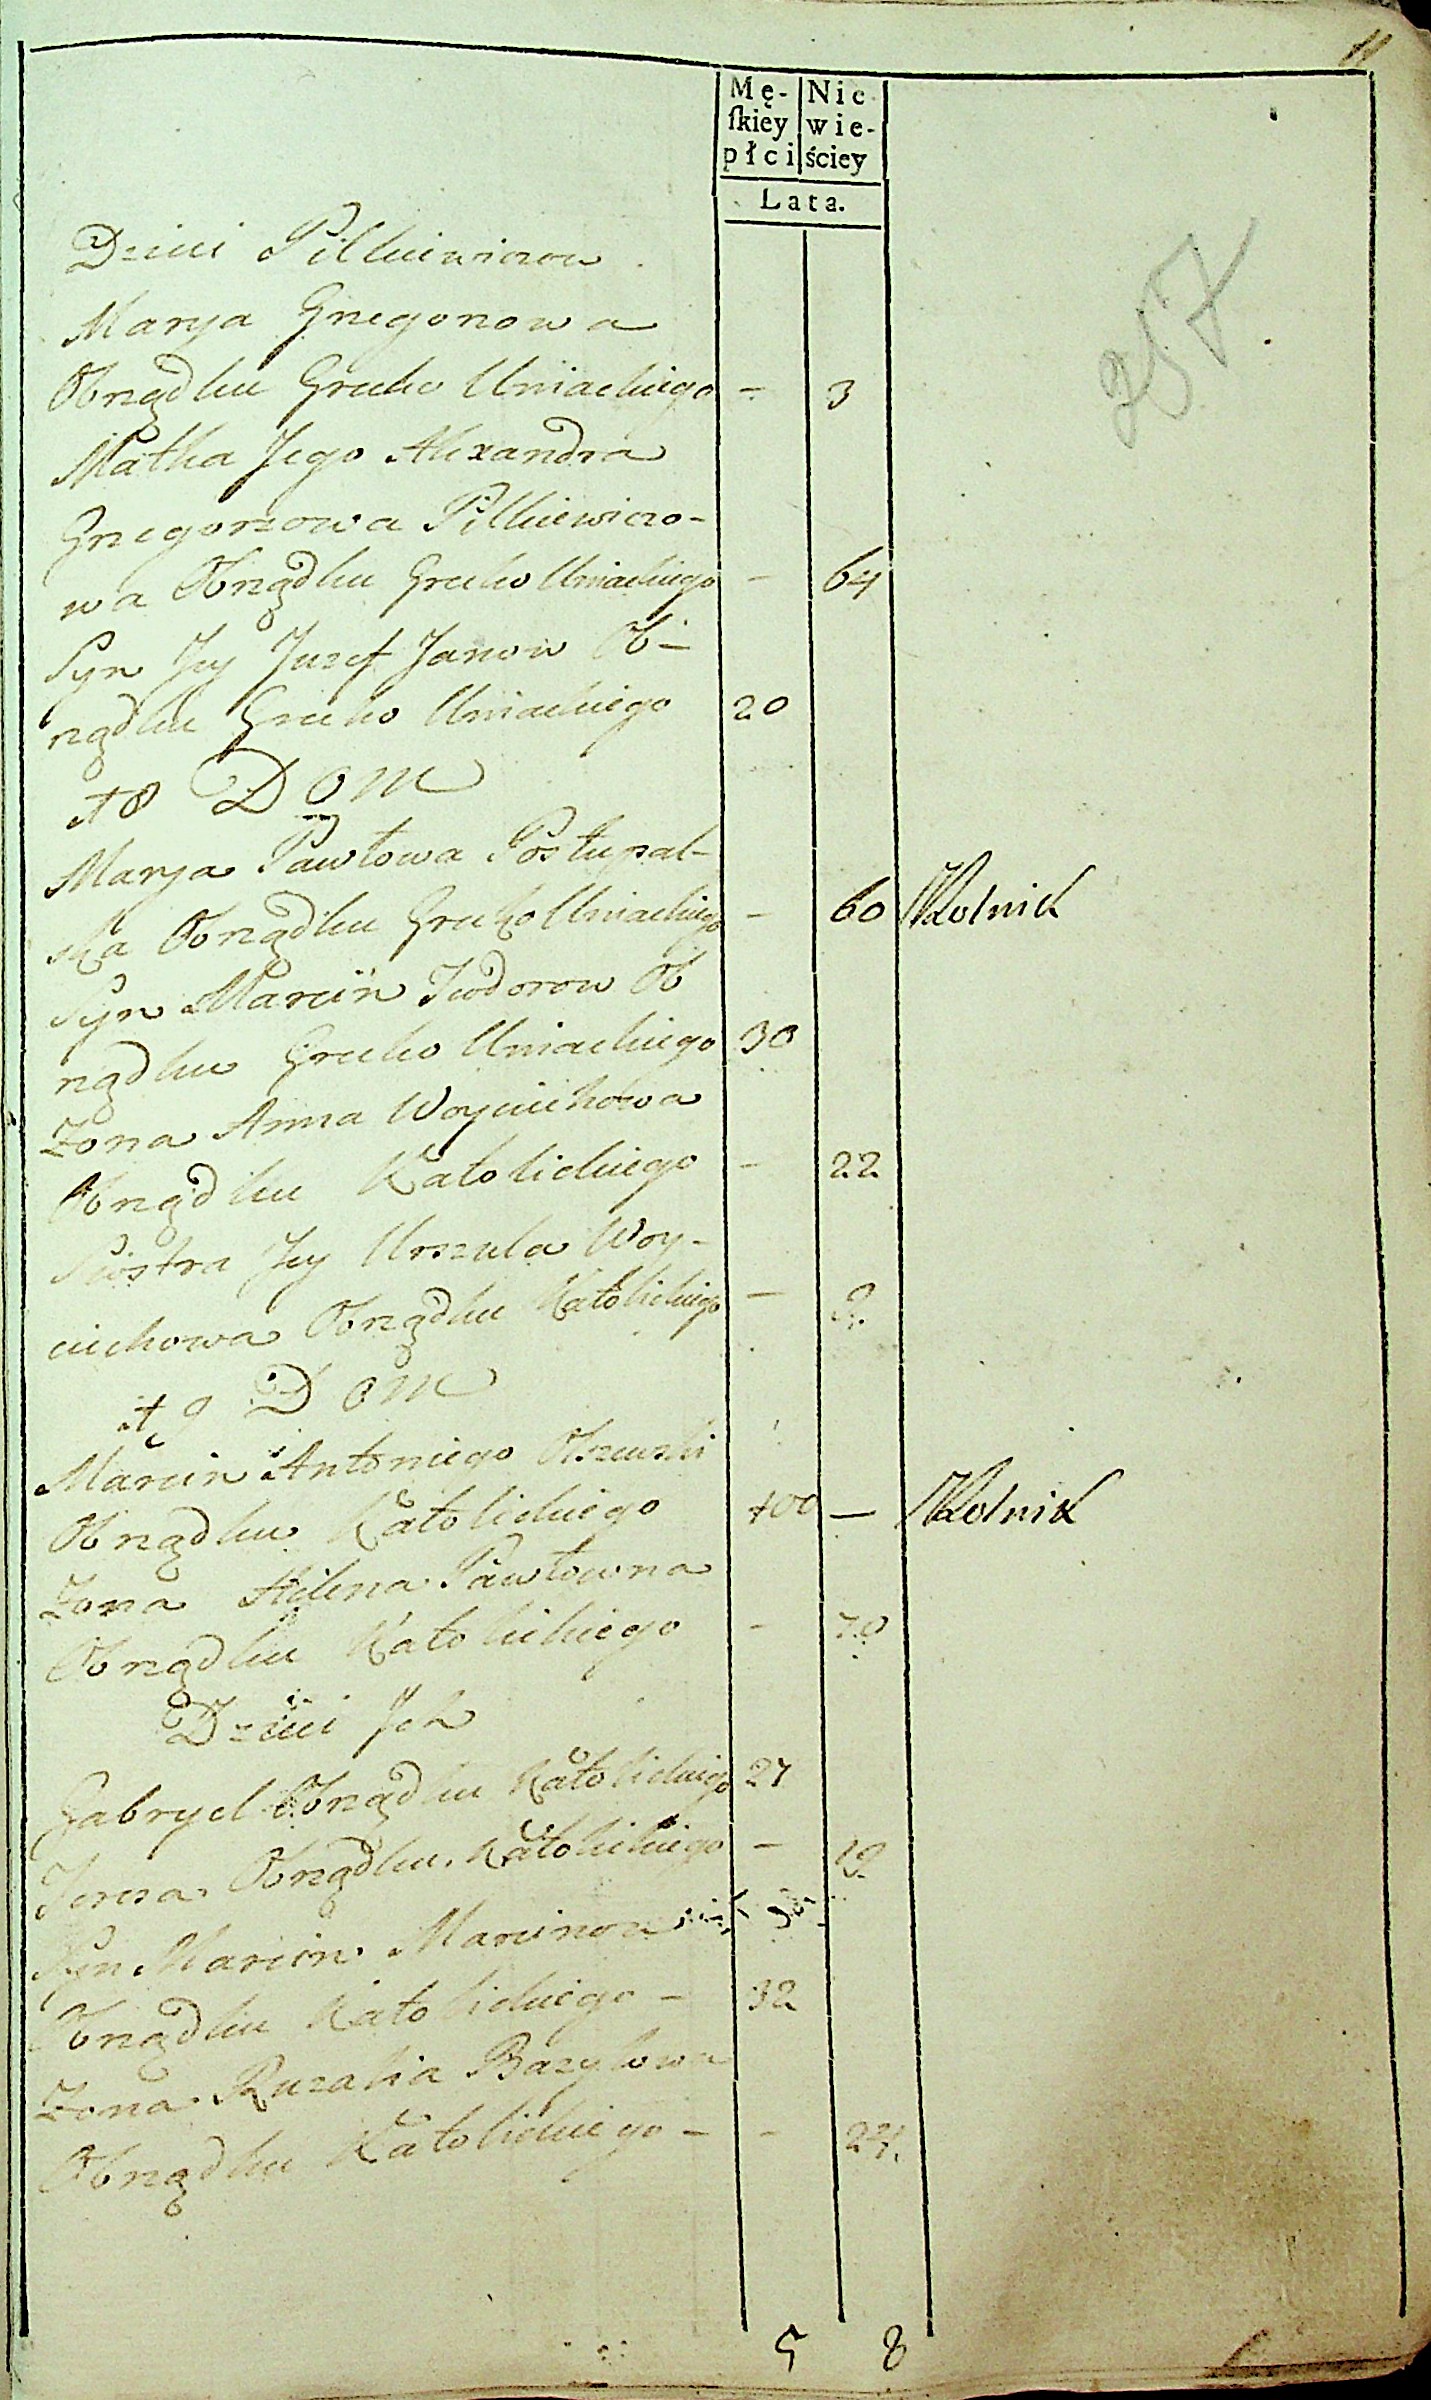 11
Mę- Nie
ſkiey wie-
płci ściey
Lata.
257
Dzieci Pilkiewiczow
Marya Gregorzowa
Obrządku Greko Uniackiego - 3
Matka Jego Alexandra
Gregorzowa Pilkiewiczo-
wa Obrządku Greko Uniackiego - 64
Syn Jey Juzef Janow Ob-
rządku Greko Uniackiego 20
18 Dom
Marya Pawłowa Postupal-
ska Obrządku Greko Uniackiego - 60 Rolnik
Syn Marcin Teodorow Ob
rządku Greko Uniackiego 30
Zona Anna Woyciechowa
Obrządku Katolickiego - 22
Siostra Jey Urszula Woy-
ciechowa Obrządku Katolickiego - 9.
19 Dom
Marcin Antoniego Olszewski
Obrządku Katolickiego 100 — Rolnik
Zona Helena Pawłowna
Obrządku Katolickiego - 70
Dzieci Jch
Gabryel Obrządku Katolickiego 27
Teresa Obrządku Katolickiego - 19
Syn Marcin Marcinow
Obrządku Katolickiego - 32
Zona Ruzalia Bazylowa
Obrządku Katolickiego - - 24.
5 8